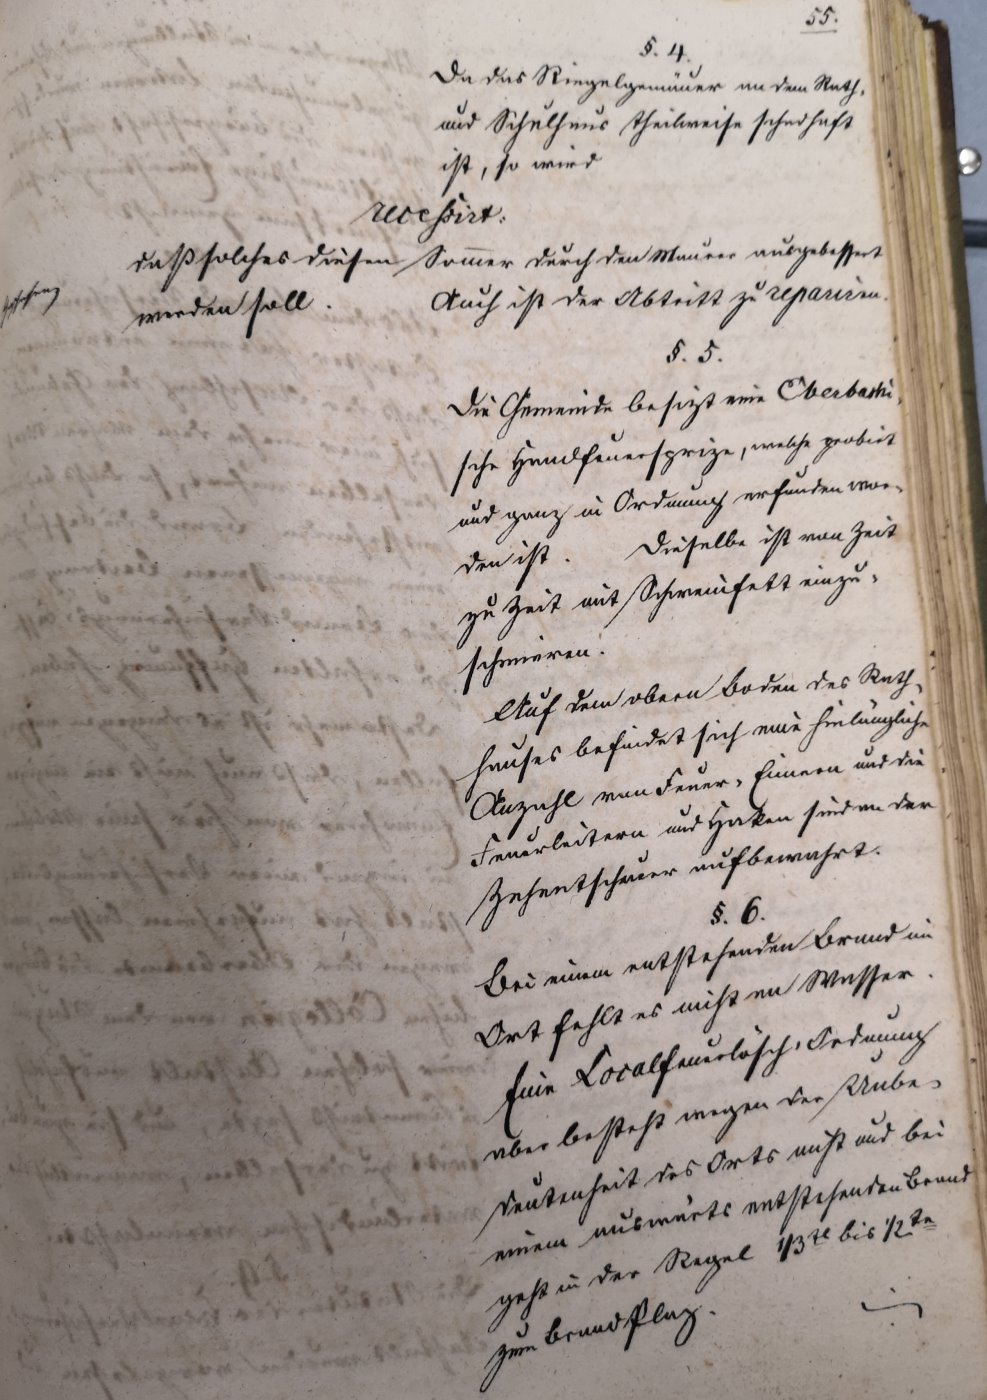 55.
§. 4.
Da das Riegelgemäuer an dem Rath-
und Schulhaus theilweise schadhaft
ist, so wird
recessirt:
daß solches diesen Sommer durch den Maurer ausgebessert
werden soll. Auch ist der Abtritt zu repariren.
§. 5.
Die Gemeinde besizt eine Oberbachi-
sche Handfeuersprize, welche probirt
und ganz in Ordnung erfunden wor-
den ist. Dieselbe ist von Zeit
zu Zeit mit Schweinfett einzu-
schmieren.
Auf dem obern Boden des Rath-
hauses befindet sich eine hinlängliche
Anzahl von Feuer-Eimern und die
Feuerleitern und Haken sind an der
Zehentscheuer aufbewahrt.
§. 6.
Bei einem entstehenden Brand im
Ort fehlt es nicht an Wasser.
Eine Localfeuerlösch-Ordnung
aber besteht wegen der Unbe-
deutenheit des Orts nicht und bei
einem auswärts entstehenden Brand
geht in der Regel 1/3tl bis 1/2te
zum Brand Plaz.